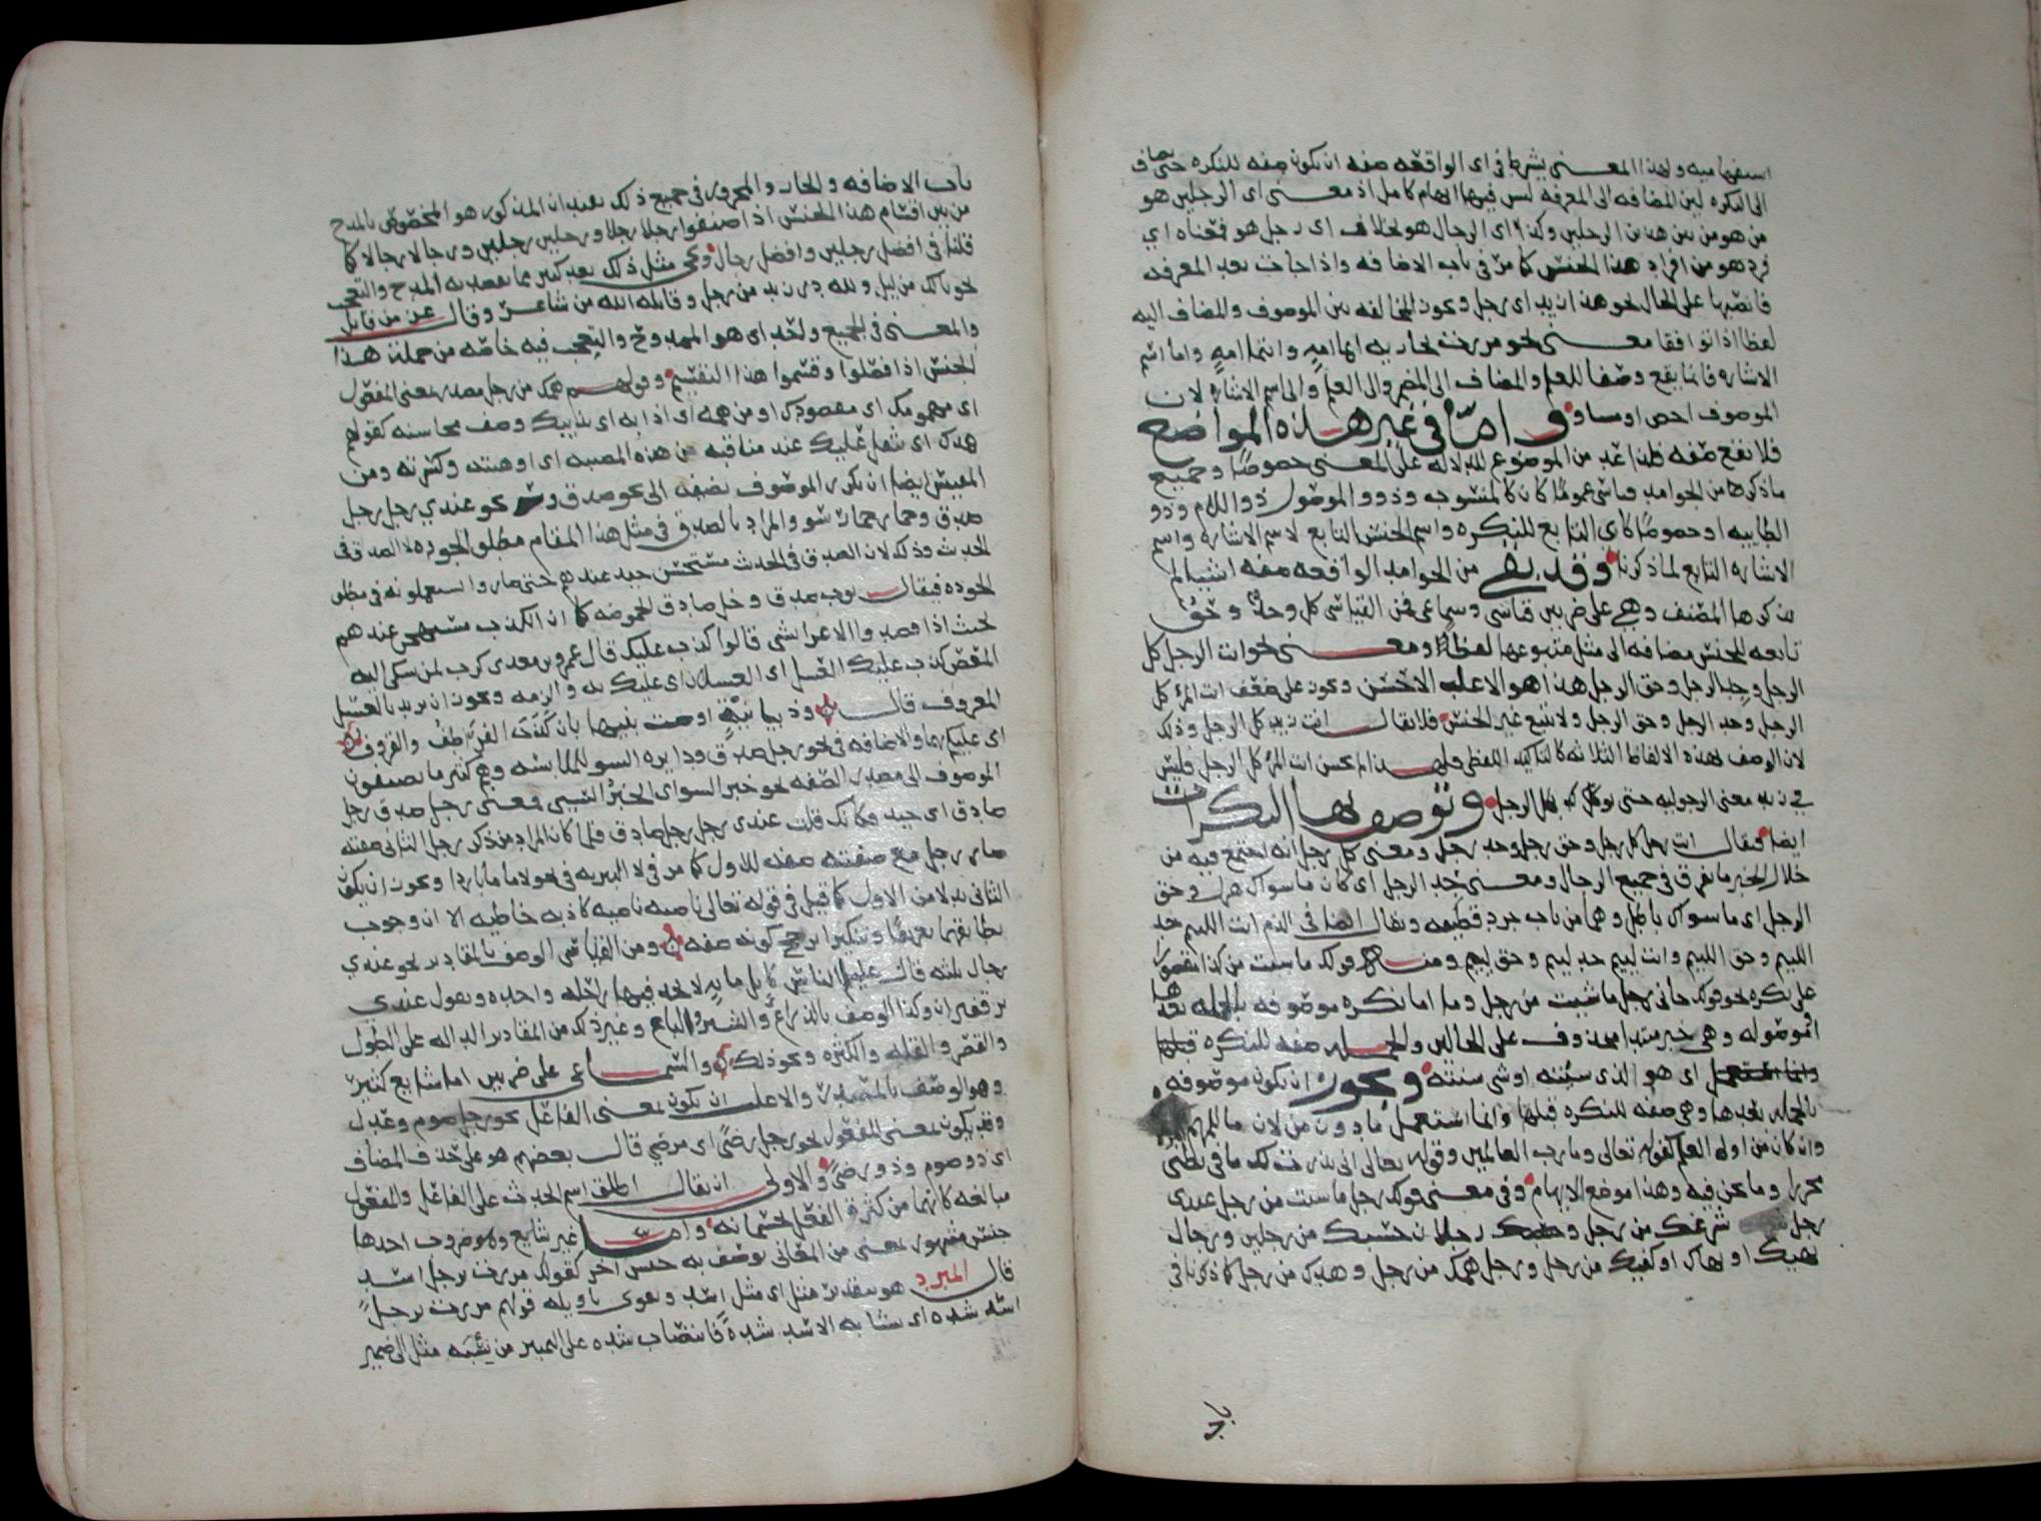 استفهاميه ولهذا المعنى يشرط في اى الواقعه صفه ان يكون صفه للنكره حتى يضاف
الى النكره لين المضافه الى المعرفه ليس فيها ابهام كامل اذ معنى اى الرجلين هو
من هو من بين هذين الرجلين وكذا اى الرجال هو بخلاف اى رجل هو فمعناه اي
فرد هو من افراد هذا الجنس كما مر في باب الاضافه واذا جات بعد المعرفه
فانصبها على الحال نحو هذا زيد اى رجل ويجوز المخالفه بين الموصوف والمضاف اليه
لفظا اذا توافقا معنى نحو مررت بجاريه ايما امه وايتما امه واما اسم
الاشاره فانما يقع وصفا للعلم والمضاف الى المضمر والى العلم والى اسم الاشاره لان
الموصوف اخص او مساو واما في غير هذه المواضع
فلا تقع صفه
ماذكرها من الجوامد قياسى عموما كان كالمنسوب وذوو الموصول ذو اللام وذو
الطاييه او خصوصا كاى التابع للنكره واسم الجنس التابع لاسم الاشاره واسم
الاشاره التابع لما ذكرنا وقد بقي من الجوامد الواقعه صفه اشيا لم
يذكرها المصنف وهي على ضربين قياسى وسماعى فمن القياسى كل وجد وحق
تابعه للجنس مضافه الى مثل متبوعها لفظا ومعنى نحو انت الرجل كل
الرجل وجد الرجل وحق الرجل هذا هو الاغلب الاحسن ويجوز على ضعف انت المرء كل
الرجل وجد الرجل وحق الرجل ولا يتبع غير الجنس فلا يقال انت زيد كل الرجل وذلك
لان الوصف بهذه الالفاظ الثلاثه كالتاكيد اللفظى فلهذا لم يحسن انت المرء كل الرجل فليس
في زيد معنى الرجوليه حتى توكد بكل الرجل وتوصف بها النكرات
ايضا فيقال انت رجل كل رجل وحق رجل وجد رجل ومعنى كل رجل انه اجتمع فيه من
خلال الخير ما تفرق في جميع الرجال ومعنى جد الرجل اى كان ما سواك هزل وحق
الرجل اى ما سواك باطل وهما من باب جرد قطيفه ويقال ايضا في الذم انت اللييم جد
اللييم وحق اللييم وانت لييم جد لييم وحق لييم ومنه قولك ما شيت من كذا مقصورا
على نكره نحو قولك جانى رجل ما شيت من رجل وما اما نكره موصوفه بالجمله بعدها
او موصوله وهي خبر مبتدا محذوف على الحالين والجمله صفه للنكره قبلها
اى هو الذى شيته او شى شيته ويجوز ان يكون موصوفه
بالجمله بعدها وهي صفه للنكره قبلها وانما استعمل ما دون من لان ما للمبهم
وان كان من اولى العلم كقوله تعالى وما رب العالمين وقوله تعالى انى نذرت لك ما في بطنى
محررا وما نحن فيه وهذا موضع الابهام وفي معنى قولك رجل ما شيت من رجل عندى
رجل شرعك من رجل وحسبك رجلان حسبك من رجلين ورجال
نهيك او نهاك او كفيك من رجل ورجل همك من رجل وهدك من رجل كما ذكرنا في
باب الاضافه والجار والمجرور في جميع ذلك يفيد ان المذكور هو المخصوص بالمدح
من بين اقسام هذا الجنس اذا صنفوا رجلا رجلا ورجلين رجلين ورجالا رجالا كما
قلنا في افضل رجلين وافضل رجال ويجى مثل ذلك بعد كثير مما يقصد به المدح والتعجب
نحو بالك من ليل ولله در زيد من رجل وقاتله الله من شاعر وقال عز من قايل
والمعنى في الجميع واحد اى هو الممدوح والتعجب فيه خاصه من جملة هذا
الجنس اذا فضلوا وقسموا هذا التقسيم وقولهم همك من رجل مصدر بمعنى المفعول
اى مهمومك اى مقصودك او من همه اى اذابه اى يذيبك وصف محاسنه كقولهم
هدك اى يثقل عليك عند مناقبه من هذه المصيبه اى اوهنته وكسرته ومن
المقيس ايضا ان يكرر الموصوف بضيفه الى نحو صدق وسو نحو عندي رجل رجل
صدق وحمار حمار سو والمراد بالصدق في مثل هذا المقام مطلق الجوده لا الصدق في
الحديث وذلك لان الصدق في الحديث مستحسن جيد عندهم حتى صاروا يستعملونه في مطلق
الجوده فيقال ثوب صدق وخل صادق الحموضه كما ان الكذب مستهجن عندهم
بحيث اذا قصدوا الاغرا بشى قالوا كذب عليك قال عمرو بن معدى كرب لمن شكى اليه
المغص كذب عليك العسل اى العسلان اى عليك به والزمه ويجوز ان يريد بالعسل
المعروف قال وذبيانيه اوصت بنيها بان كذب القراطف والقروف
اى عليكم بهما والاضافه في نحو رجل صدق ودايره السو للملابسه وهم كثير ما يضيفون
الموصوف الى مصدر الصفه نحو خبر السو اى الخبر السيى فمعنى رجل صدق رجل
صادق اى جيد فكانك قلت عندى رجل رجل صادق فلما كان المراد من ذكر رجل الثانى صفته
صار رجل مع صفته صفه للاول كما مر في لا التبريه في نحو لا ماء ماء باردا ويجوز ان يكون
الثانى بدلا من الاول كما قيل في قوله تعالى ناصيه ناصيه كاذبه خاطيه الا ان وجوب
تطابقهما تعريفا وتنكيرا يرجح كونه صفه ومن القياسى الوصف بالمقادير نحو عندي
رجال ثلثه قال عليه الناس كابل مايه لا تجد فيها راحله واحده وتقول عندى
بر قفيزان وكذا الوصف بالذراع والشبر والباع وغير ذلك من المقادير الداله على الطول
والقصر والقله والكثره ونحو ذلك والسماعى على ضربين اما شايع كثير
وهو الوصف بالمصدر والاغلب ان يكون بمعنى الفاعل نحو رجل صوم وعدل
وقد يكون بمعنى المفعول نحو رجل رضى اى مرضي قال بعضهم هو على حذف المضاف
اى ذو صوم وذو رضى والاولى ان يقال اطلق اسم الحدث على الفاعل والمفعول
مبالغه كانهما من كثرة الفعل تجسما منه واما غير شايع وهو ضروب احدها
جنس مشهور بمعنى من المعانى يوصف به جنس اخر كقولك مررت برجل اسد
قال المبرد هو بتقدير مثل اى مثل اسد ويقوى تاويله قولهم مررت برجل
اسد شده اى يشابه الاسد شدة فانتصاب شده على التمييز من شبه مثل الى ضمير